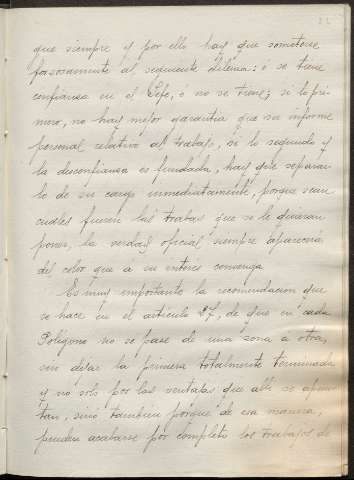 que siempre y por ello hay que someterse
forsosamente al siguiente Dilema: ó se tiene
confianza en el Jefe, ó no se tiene; si lo pri-
mero, no hay mejor garantia que su informe
personal relativo al trabajo, si lo segundo y
la desconfianza es fundada, hay que separar-
lo de su cargo inmediatamente, porque sean
cuales fueren las trabas que se le quieran
poner, la verdad oficial siempre aparecerá
del color que á su interes convenga
Es muy importante la recomendacion que
se hace en el articulo 27, de que en cada
Poligono no se pase de una zona a otra,
sin dejar la primera totalmente terminada
y no solo por las ventajas que alli se apun-
tan, sinó tambien porque de esa manera,
pueden acabarse por completo los trabajos de